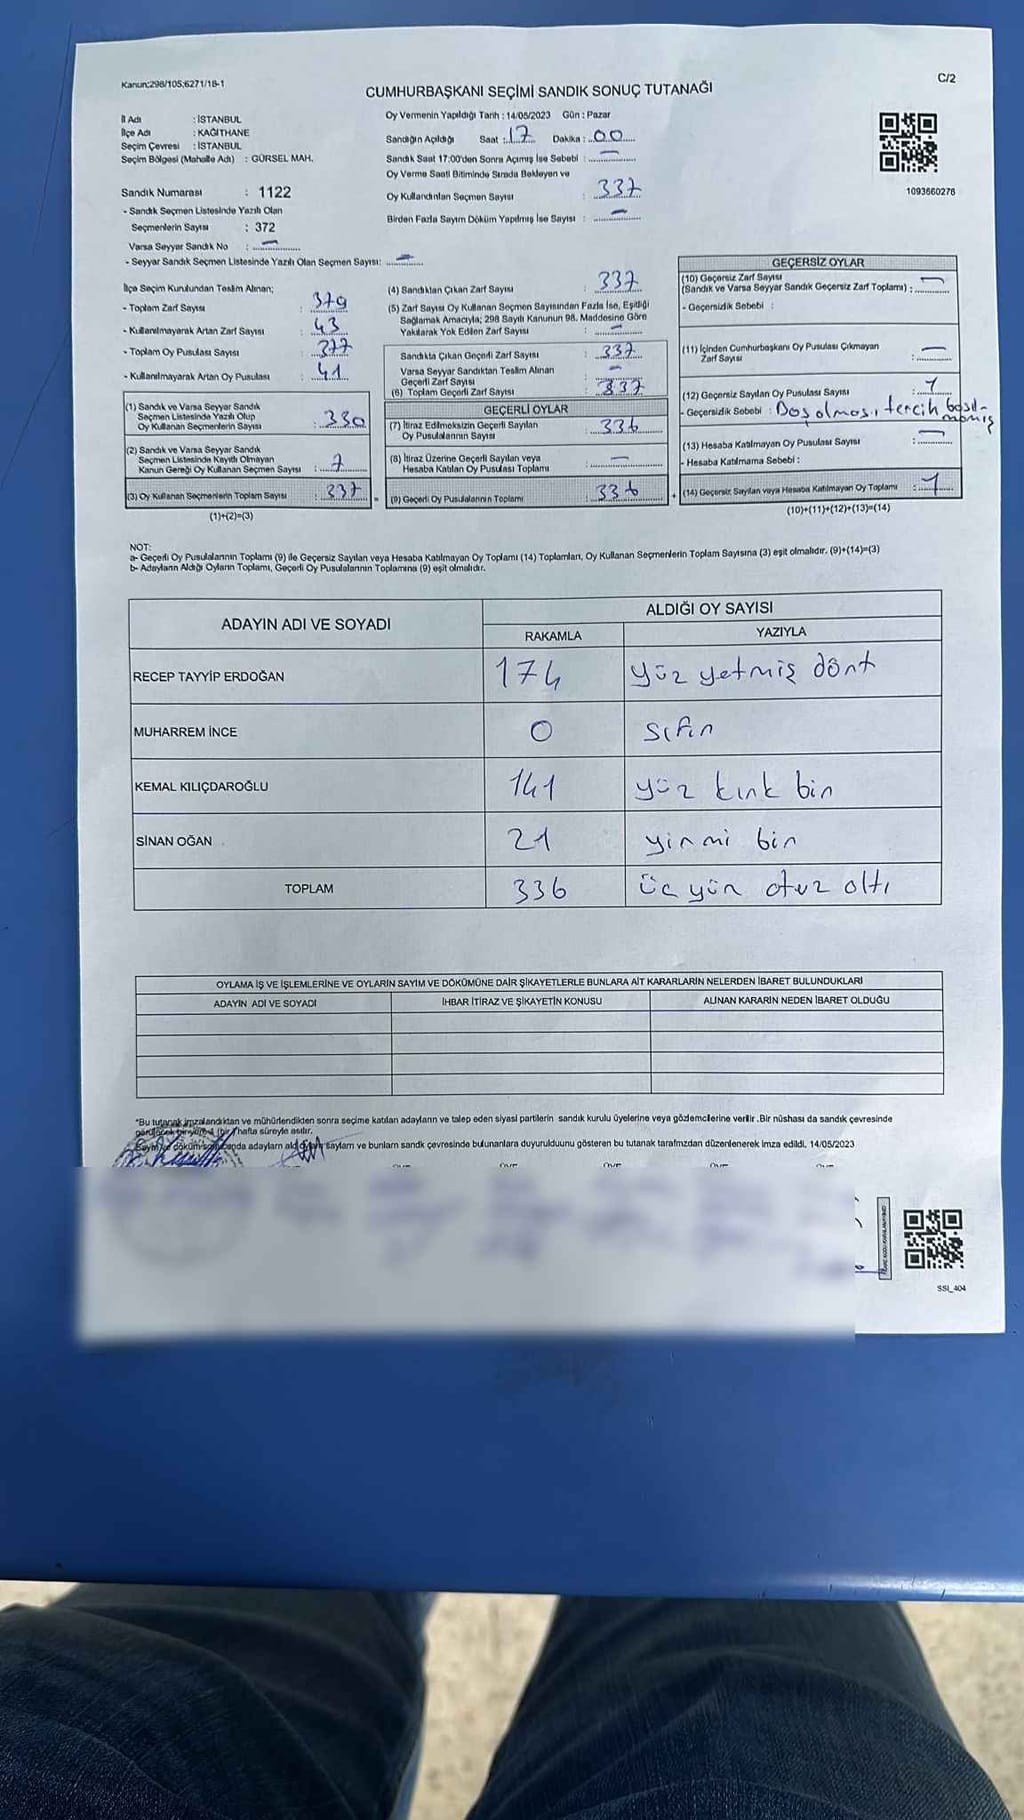 Kanun:298/105;6271/18-1
C/2
CUMHURBAŞKANI SEÇİMİ SANDIK SONUÇ TUTANAĞI
İl Adı : İSTANBUL
İlçe Adı : KAĞITHANE
Seçim Çevresi : İSTANBUL
Seçim Bölgesi (Mahalle Adı) : GÜRSEL MAH.
Sandık Numarası : 1122
- Sandık Seçmen Listesinde Yazılı Olan
Seçmenlerin Sayısı : 372
Varsa Seyyar Sandık No : —
- Seyyar Sandık Seçmen Listesinde Yazılı Olan Seçmen Sayısı: —
Oy Vermenin Yapıldığı Tarih : 14/05/2023 Gün : Pazar
Sandığın Açıldığı Saat : 17 Dakika : 00
Sandık Saat 17:00'den Sonra Açılmış İse Sebebi : —
Oy Verme Saati Bitiminde Sırada Bekleyen ve
Oy Kullandırılan Seçmen Sayısı : 337
Birden Fazla Sayım Döküm Yapılmış İse Sayısı : —
1093660276
İlçe Seçim Kurulundan Teslim Alınan;
- Toplam Zarf Sayısı : 379
- Kullanılmayarak Artan Zarf Sayısı : 43
- Toplam Oy Pusulası Sayısı : 377
- Kullanılmayarak Artan Oy Pusulası : 41
(1) Sandık ve Varsa Seyyar Sandık
Seçmen Listesinde Yazılı Olup
Oy Kullanan Seçmenlerin Sayısı : 330
(2) Sandık ve Varsa Seyyar Sandık
Seçmen Listesinde Kayıtlı Olmayan
Kanun Gereği Oy Kullanan Seçmen Sayısı : 7
(3) Oy Kullanan Seçmenlerin Toplam Sayısı : 337
(1)+(2)=(3)
(4) Sandıktan Çıkan Zarf Sayısı : 337
(5) Zarf Sayısı Oy Kullanan Seçmen Sayısından Fazla İse, Eşitliği
Sağlamak Amacıyla; 298 Sayılı Kanunun 98. Maddesine Göre
Yakılarak Yok Edilen Zarf Sayısı : —
Sandıkta Çıkan Geçerli Zarf Sayısı : 337
Varsa Seyyar Sandıktan Teslim Alınan
Geçerli Zarf Sayısı : —
(6) Toplam Geçerli Zarf Sayısı : 337
GEÇERLİ OYLAR
(7) İtiraz Edilmeksizin Geçerli Sayılan
Oy Pusulalarının Sayısı : 336
(8) İtiraz Üzerine Geçerli Sayılan veya
Hesaba Katılan Oy Pusulası Toplamı : —
(9) Geçerli Oy Pusulalarının Toplamı : 336
GEÇERSİZ OYLAR
(10) Geçersiz Zarf Sayısı
(Sandık ve Varsa Seyyar Sandık Geçersiz Zarf Toplamı) : —
- Geçersizlik Sebebi :
(11) İçinden Cumhurbaşkanı Oy Pusulası Çıkmayan
Zarf Sayısı : —
(12) Geçersiz Sayılan Oy Pusulası Sayısı : 1
- Geçersizlik Sebebi : Boş olması, tercih basıl-
mamış
(13) Hesaba Katılmayan Oy Pusulası Sayısı : —
- Hesaba Katılmama Sebebi :
(14) Geçersiz Sayılan veya Hesaba Katılmayan Oy Toplamı : 1
(10)+(11)+(12)+(13)=(14)
NOT:
a- Geçerli Oy Pusulalarının Toplamı (9) ile Geçersiz Sayılan veya Hesaba Katılmayan Oy Toplamı (14) Toplamları, Oy Kullanan Seçmenlerin Toplam Sayısına (3) eşit olmalıdır. (9)+(14)=(3)
b- Adayların Aldığı Oyların Toplamı, Geçerli Oy Pusulalarının Toplamına (9) eşit olmalıdır.
ADAYIN ADI VE SOYADI
ALDIĞI OY SAYISI
RAKAMLA YAZIYLA
RECEP TAYYİP ERDOĞAN 174 yüz yetmiş dört
MUHARREM İNCE 0 sıfır
KEMAL KILIÇDAROĞLU 141 yüz kırk bir
SİNAN OĞAN 21 yirmi bir
TOPLAM 336 üç yüz otuz altı
OYLAMA İŞ VE İŞLEMLERİNE VE OYLARIN SAYIM VE DÖKÜMÜNE DAİR ŞİKAYETLERLE BUNLARA AİT KARARLARIN NELERDEN İBARET BULUNDUKLARI
ADAYIN ADI VE SOYADI İHBAR İTİRAZ VE ŞİKAYETİN KONUSU ALINAN KARARIN NEDEN İBARET OLDUĞU
*Bu tutanak imzalandıktan ve mühürlendikten sonra seçime katılan adayların ve talep eden siyasi partilerin sandık kurulu üyelerine veya gözlemcilerine verilir .Bir nüshası da sandık çevresinde
bir hafta süreyle asılır.
Sayım ve döküm sonucunda adayların aldığı sayıların ve bunların sandık çevresinde bulunanlara duyurulduunu gösteren bu tutanak tarafımızdan düzenlenerek imza edildi. 14/05/2023
SSI_404